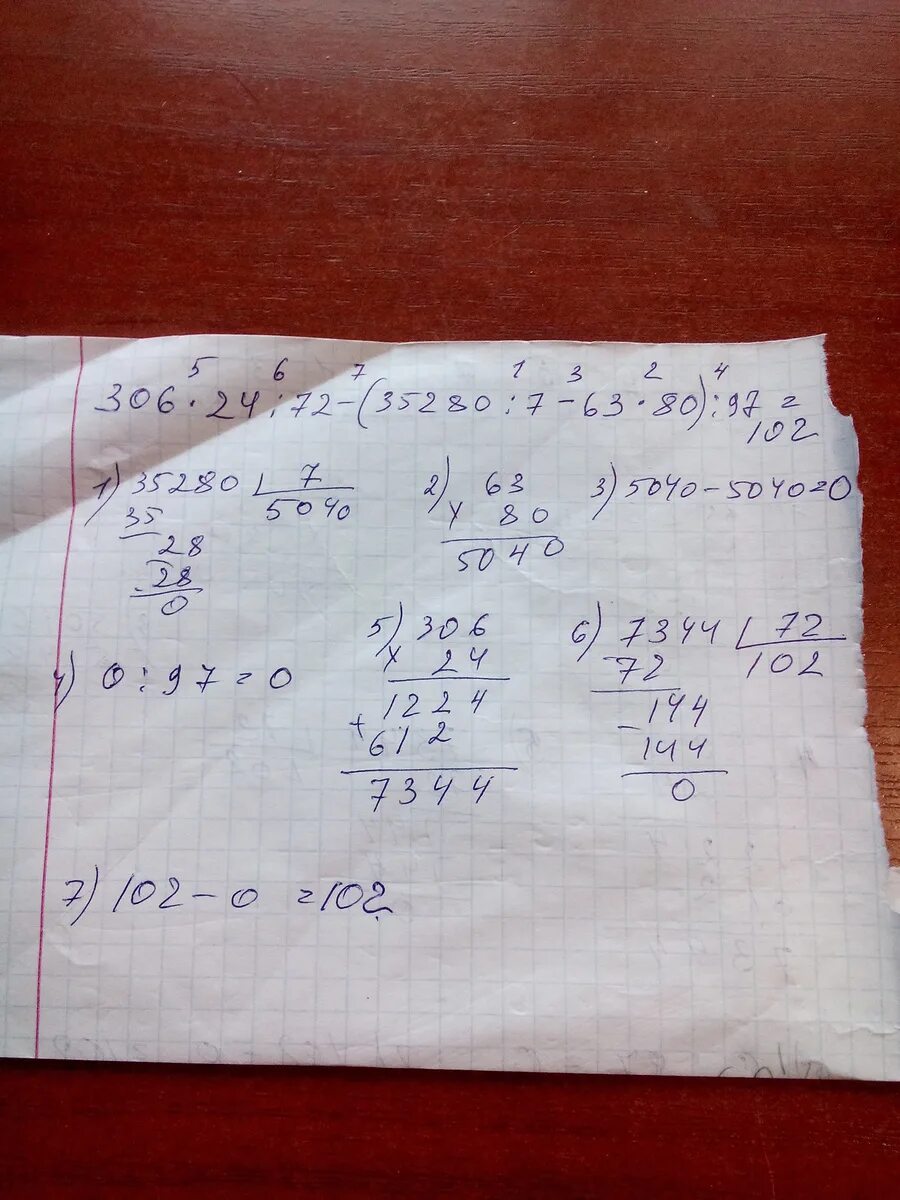 5 6 7 1 3 2 4
306 · 24 : 72 - (35280 : 7 - 63 · 80) : 97 =
102
1) 35280 7
5040
35
28
28
0
2) 63
x 80
5040
3) 5040 - 5040 = 0
4) 0 : 97 = 0
5) 306
x 24
1224
+
612
7344
6) 7344 72
72 102
- 144
144
0
7) 102 - 0 = 102